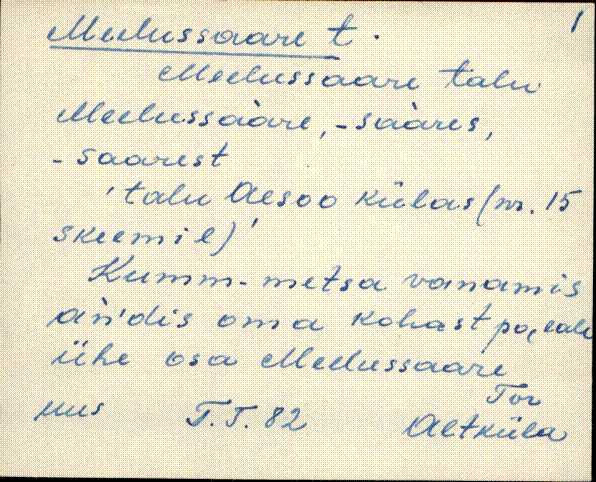 1
Meelussaare t.
Meelussaare talu
Meelussàare, -sàares,
-saarest
'talu Aesoo külas (nr. 15
skeemil)'
Kumm-metsa vanamis
àǹ'dis oma kohast
ühe osa Meelussaare
Tor
mus T.T. 82 Altküla